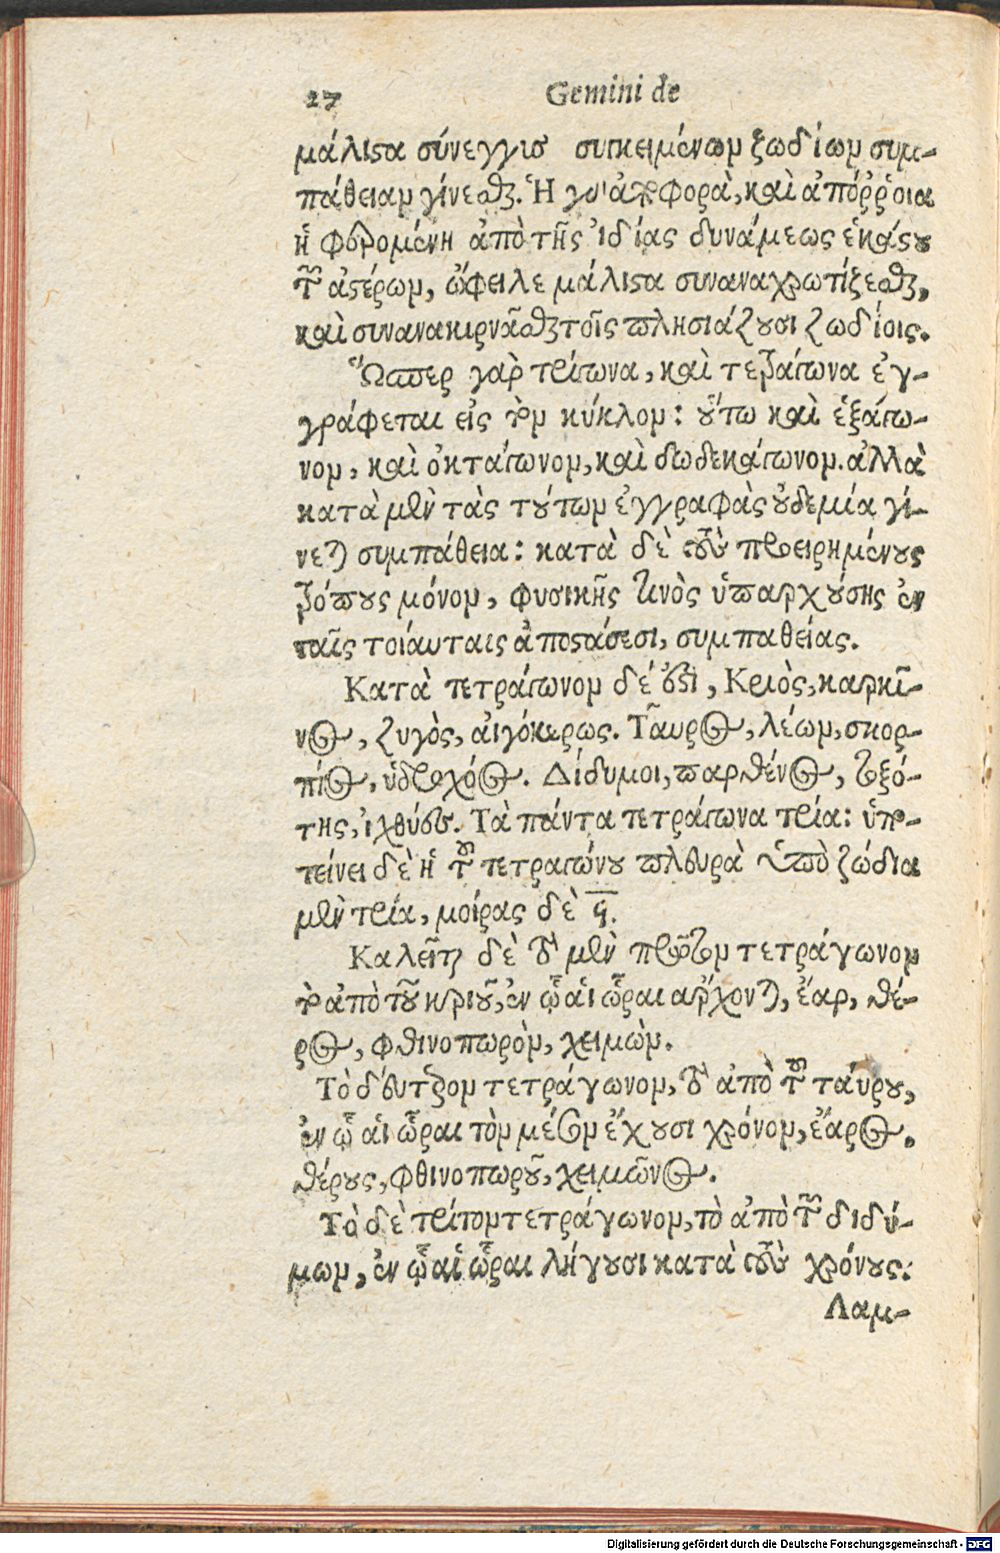 27 Gemini de
μάλιϛα σύνεγγισ συγκειμένων ζωδίων συμ-
πάθειαν γίνεσθαι. Ἡ γὰρ ἀναφορὰ, καὶ ἀπόῤῥοια
ἡ φερομένη ἀπὸ τῆς ἰδίας δυνάμεως ἑκάϛου
τῶν ἀϛέρων, ὤφειλε μάλιϛα συναναχρωτίζεσθαι,
καὶ συνανακιρνᾶσθαι τοῖς πλησιάζουσι ζωδίοις.
Ὥσπερ γὰρ τρίγωνα, καὶ τετράγωνα ἐγ-
γράφεται εἰς τὸν κύκλον: οὕτω καὶ ἑξάγω-
νον, καὶ ὀκτάγωνον, καὶ δωδεκάγωνον. ἀλλὰ
κατὰ μὲν τὰς τούτων ἐγγραφὰς οὐδεμία γί-
νεται συμπάθεια: κατὰ δὲ τοὺς προειρημένους
τρόπους μόνον, φυσικῆς τινὸς ὑπαρχούσης ἐν
ταῖς τοιάυταις ἀποϛάσεσι, συμπαθείας.
Κατὰ τετράγωνον δέ εἰσι, Κριὸς, καρκῖ-
νος, ζυγὸς, αἰγόκερως. Ταῦρος, λέων, σκορ-
πίος, ὑδροχόος. Δίδυμοι, παρθένος, τοξό-
της, ἰχθύες. Τὰ πάντα τετράγωνα τρία: ὑπο-
τείνει δὲ ἡ τοῦ τετραγώνου πλευρὰ ὑπὸ ζώδια
μὲν τρία, μοίρας δὲ ϟ.
Καλεῖται δὲ τὸ μὲν πρῶτον τετράγωνον
τὸ ἀπὸ τοῦ κριοῦ, ἐν ᾧ αἱ ὧραι ἄρχονται, ἔαρ, θέ-
ρος, φθινοπωρὸν, χειμὼν.
Τὸ δεύτερον τετράγωνον, τὸ ἀπὸ τοῦ τάυρου,
ἐν ᾧ αἱ ὧραι τὸν μέσον ἔχουσι χρόνον, ἔαρος.
θέρους, φθινοπωροῦ, χειμῶνος.
Τὸ δὲ τρίτον τετράγωνον, τὸ ἀπὸ τῶν διδύ-
μων, ἐν ᾧ αἱ ὧραι λήγουσι κατὰ τοὺς χρόνους:
Λαμ-
Digitalisierung gefördert durch die Deutsche Forschungsgemeinschaft - DFG